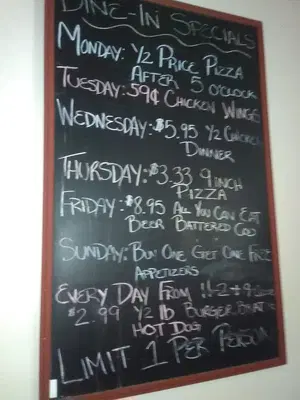 DINE-IN SPECIALS
MONDAY: 1/2 PRICE PIZZA
AFTER 5 O'CLOCK
TUESDAY: 59¢ CHICKEN WINGS
WEDNESDAY: $5.95 1/2 CHICKEN
DINNER
THURSDAY: $3.33 9 INCH
PIZZA
FRIDAY: $8.95 ALL YOU CAN EAT
BEER BATTERED COD
SUNDAY: BUY ONE GET ONE FREE
APPETIZERS
EVERY DAY FROM 11-2 + 9-
$2.99 1/2 lb BURGER, BRAT OR
HOT DOG
LIMIT 1 PER PERSON